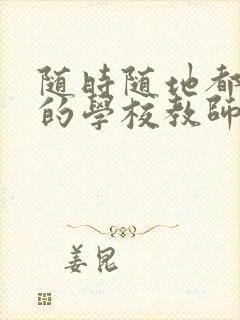 随時随地都
的學校教師
姜昆